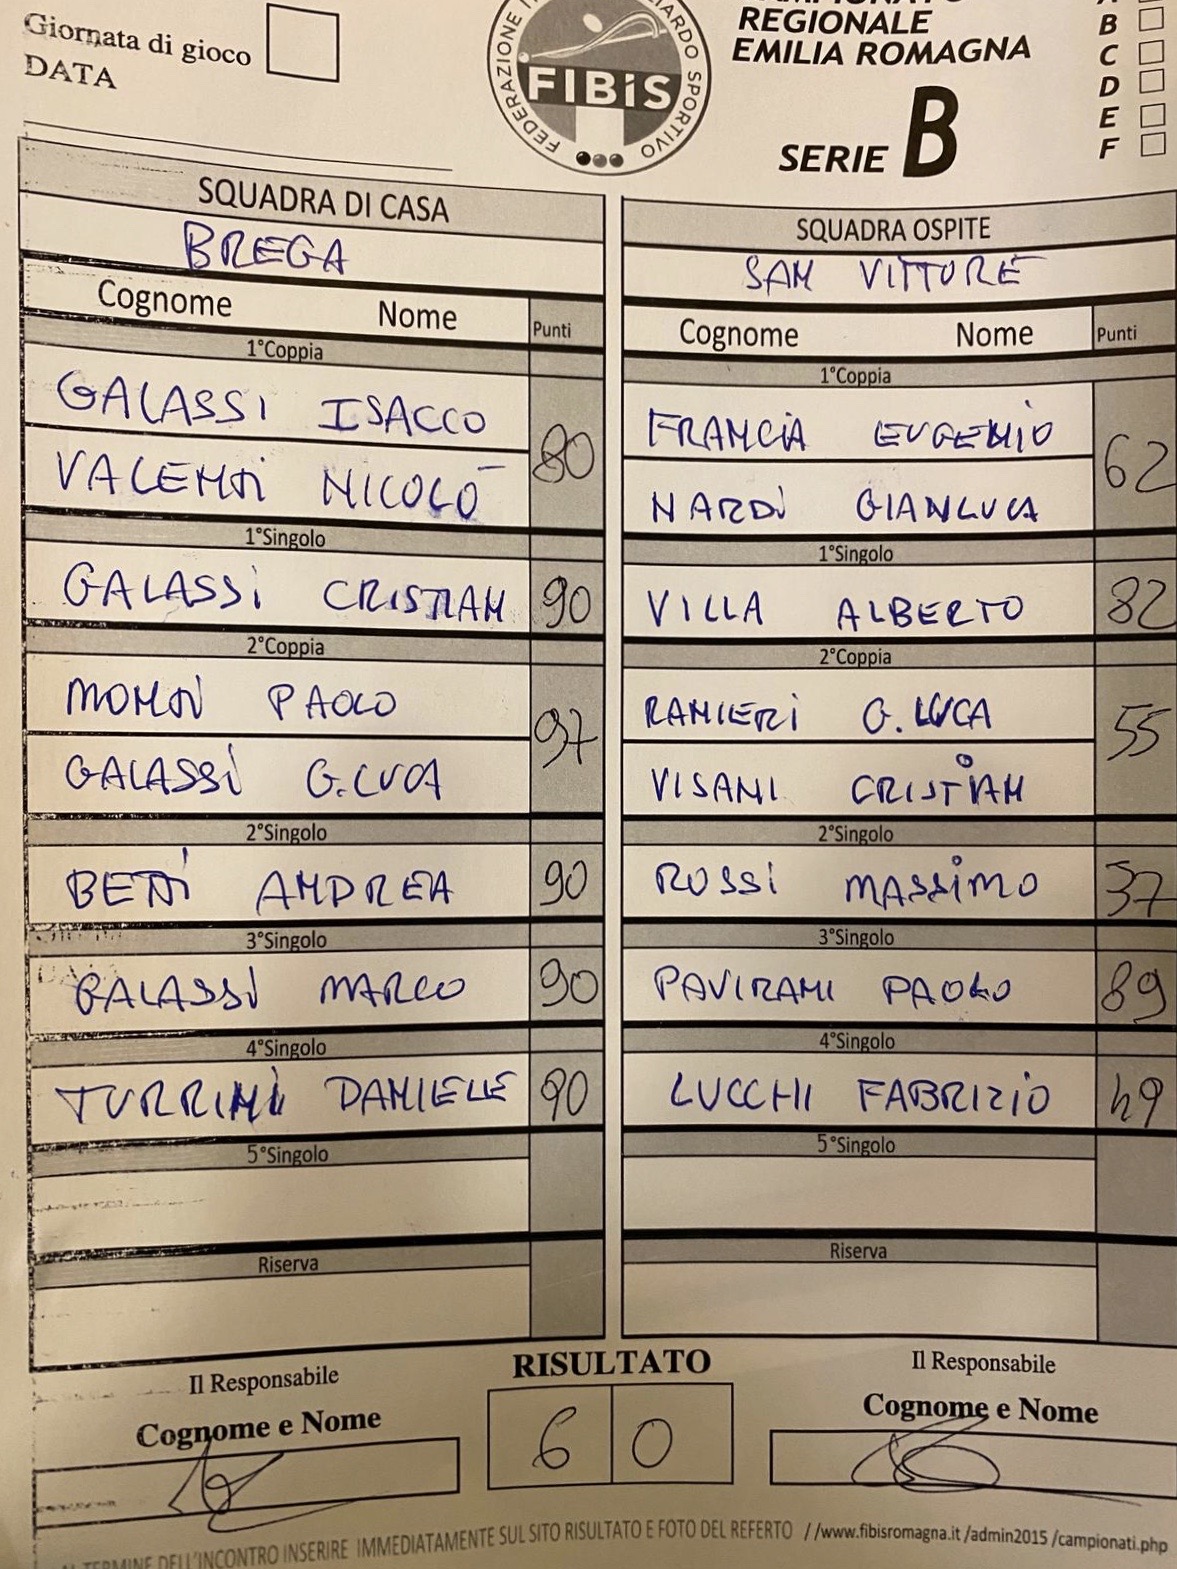 Giornata di gioco
DATA
FIBiS
REGIONALE
EMILIA ROMAGNA
SERIE B
B
C
D
E
F
SQUADRA DI CASA
BREGA
Cognome Nome Punti
1°Coppia
GALASSI ISACCO 80
VALENTI NICOLÒ
1°Singolo
GALASSI CRISTIAN 90
2°Coppia
MONTI PAOLO 97
GALASSI G.LUCA
2°Singolo
BETTI ANDREA 90
3°Singolo
GALASSI MARCO 90
4°Singolo
TURRINI DANIELE 90
5°Singolo
Riserva
SQUADRA OSPITE
SAN VITTORE
Cognome Nome Punti
1°Coppia
FRANCIA EUGENIO 62
NARDI GIANLUCA
1°Singolo
VILLA ALBERTO 82
2°Coppia
RANIERI G.LUCA 55
VISANI CRISTIAN
2°Singolo
ROSSI MASSIMO 37
3°Singolo
PAVIRANI PAOLO 89
4°Singolo
LUCCHI FABRIZIO 49
5°Singolo
Riserva
Il Responsabile
Cognome e Nome
RISULTATO
6 0
Il Responsabile
Cognome e Nome
AL TERMINE DELL'INCONTRO INSERIRE IMMEDIATAMENTE SUL SITO RISULTATO E FOTO DEL REFERTO //www.fibisromagna.it /admin2015 /campionati.php